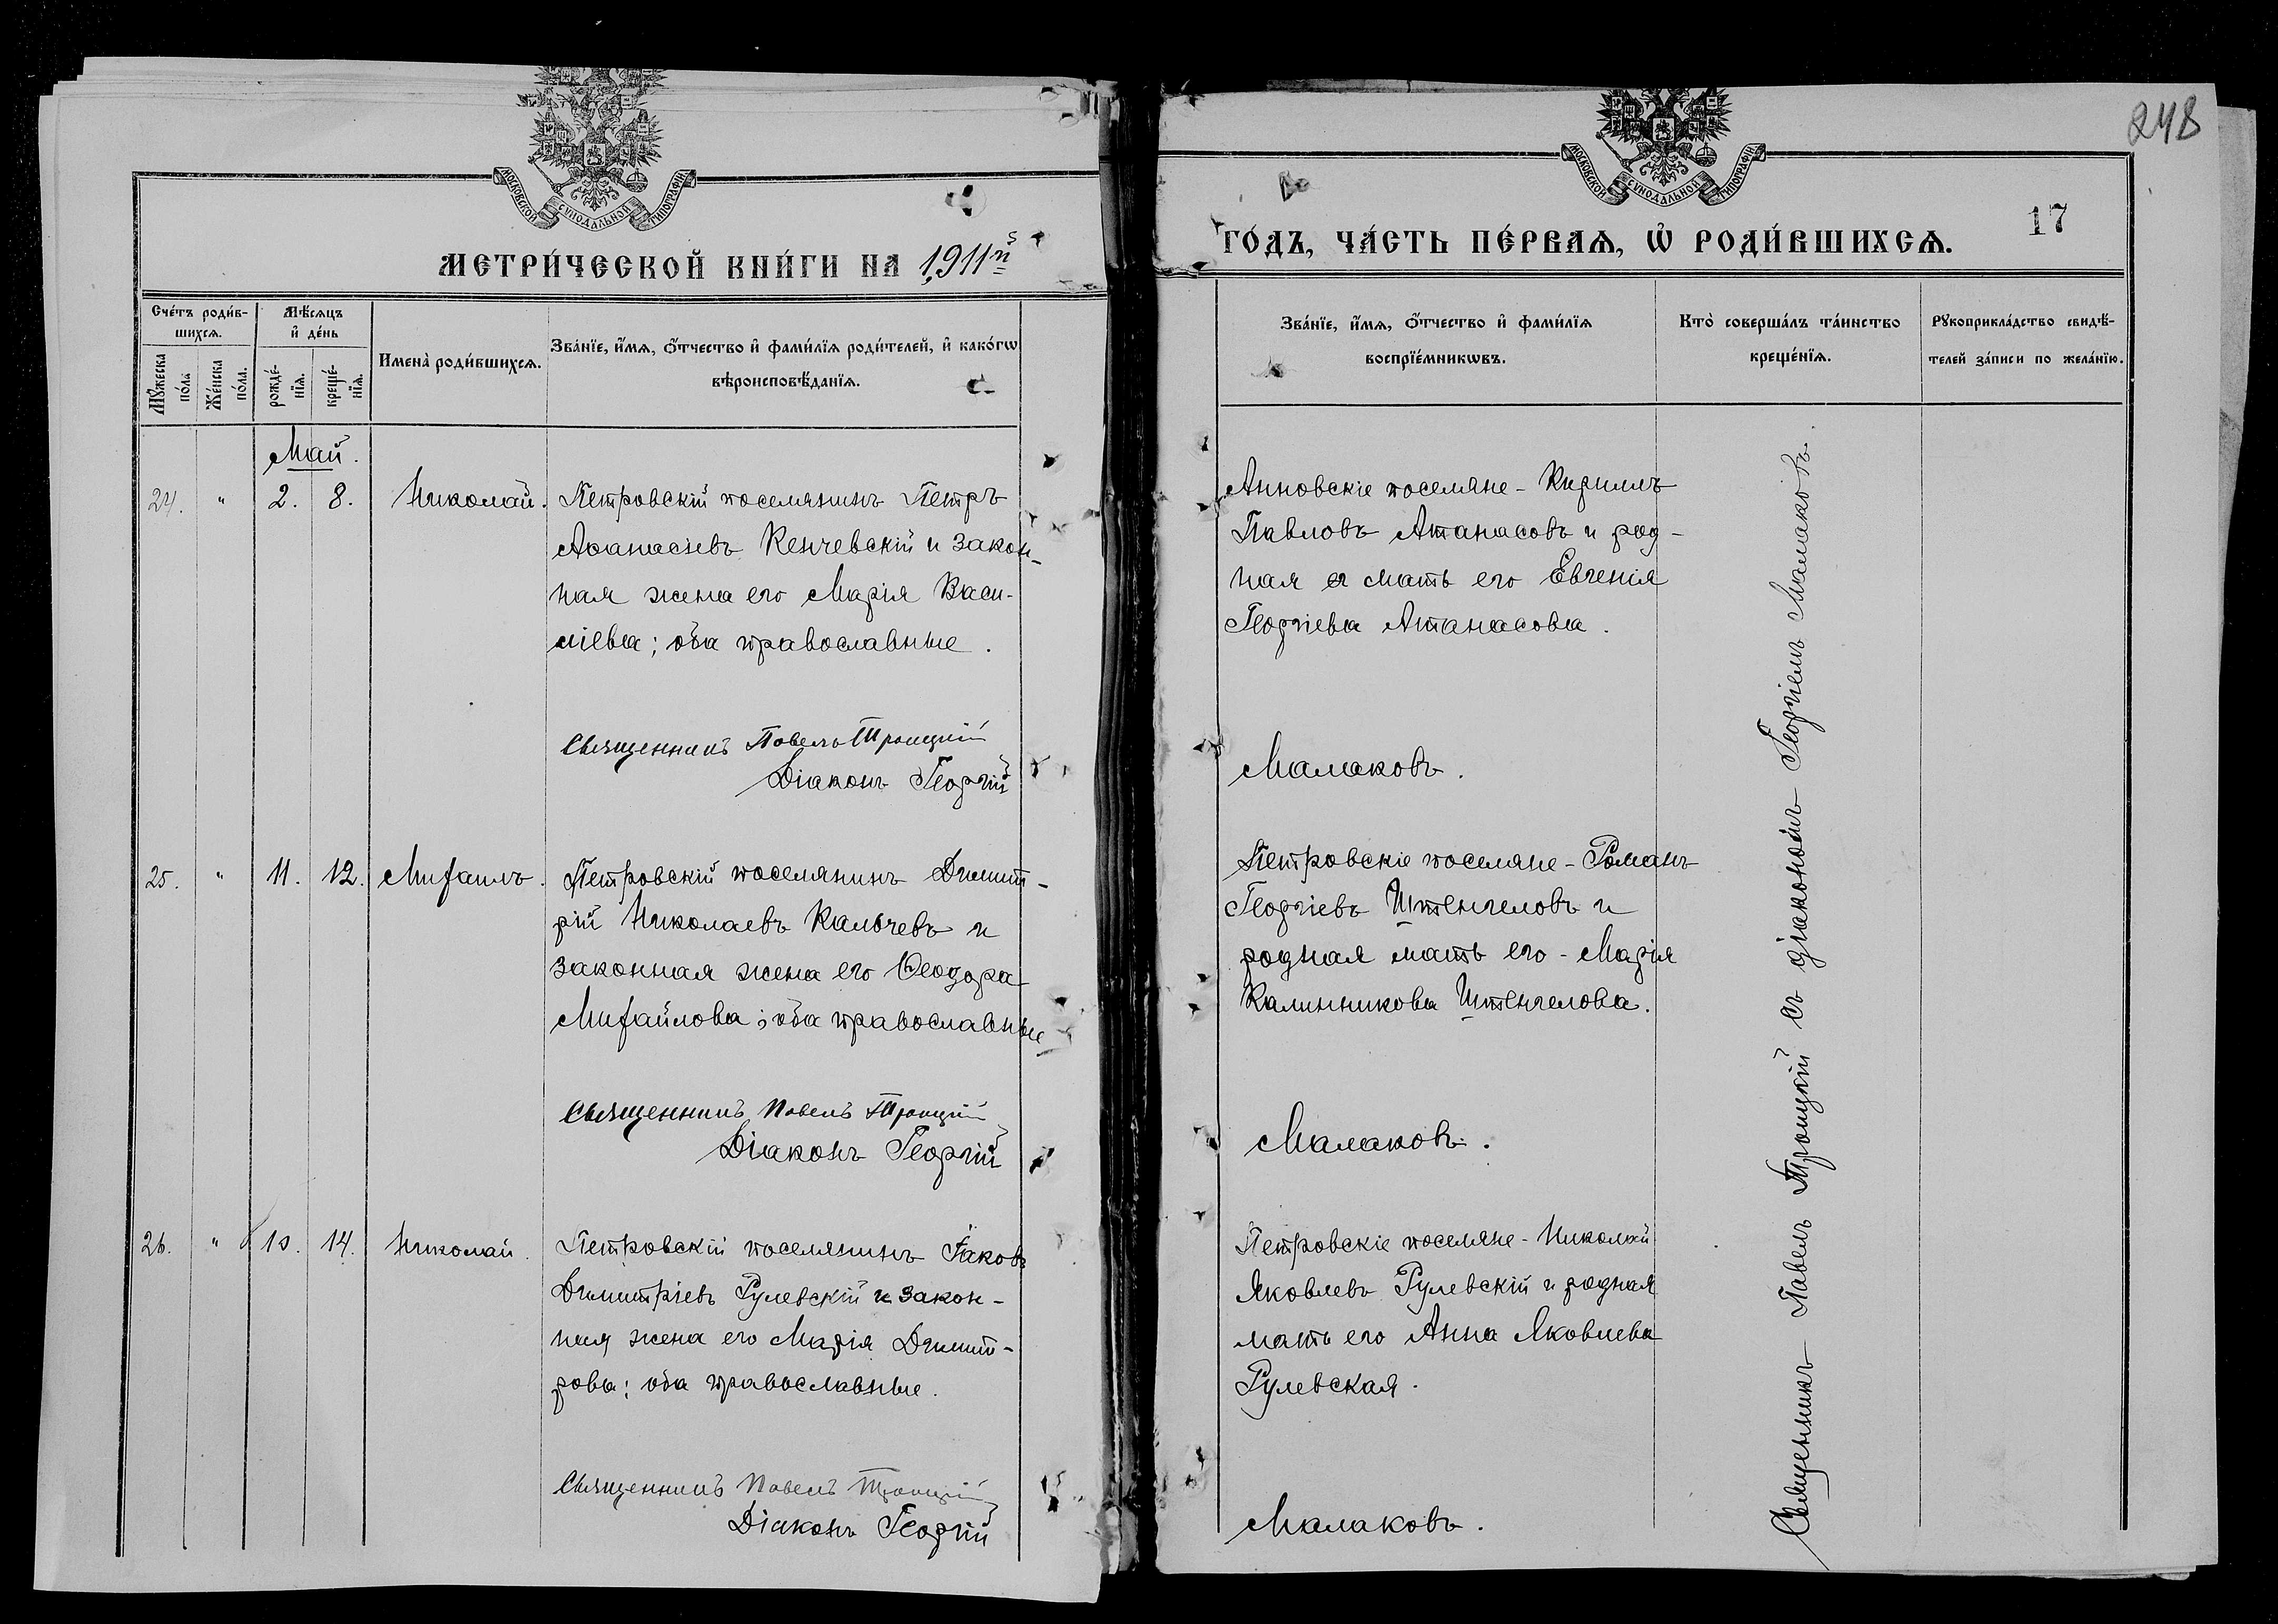 248
МОСКОВСКОЙ СУНОДАЛЬНОЙ ТИПОГРАФІИ
МОСКОВСКОЙ СУНОДАЛЬНОЙ ТИПОГРАФІИ
17
МЕТРИ́ЧЕСКОЙ КНИ́ГИ НА 1911й
ГО́ДЪ, ЧА́СТЬ ПЕ́РВАѦ, Ѡ҆ РОДИ́ВШИХСѦ.
Сче́тъ роди́в-
шихсѧ.
Мꙋ́жеска по́ла
Же́нска по́ла.
Мѣ́сѧцъ
и҆ де́нь
рожде́-нїѧ.
креще́-нїѧ.
Имена̀ роди́вшихсѧ.
Зва́нїе, и҆́мѧ, ѻ҆́тчество и҆ фами́лїѧ роди́телей, и҆ како́гѡ
вѣроисповѣ́данїѧ.
Зва́нїе, и҆́мѧ, ѻ҆́тчество и҆ фами́лїѧ
воспрїе́мникѡвъ.
Кто̀ соверша́лъ та́инство
креще́нїѧ.
Рꙋкоприкла́дство свидѣ́-
телей за́писи по жела́нїю.
Май.
24. " 2. 8. Николай. Петровскій поселянинъ Петръ
Аѳанасіевъ Кенчевскій и закон-
ная жена его Марія Васи-
ліева; оба православные.
Священникъ Павелъ Троицкій
Діаконъ Георгій
Анновскіе поселяне - Кириллъ
Павловъ Атанасовъ и род-
ная мать его Евгенія
Георгіева Атанасова.
Малаковъ.
25. " 11. 12. Михаилъ. Петровскій поселянинъ Димит-
рій Николаевъ Кальчевъ и
законная жена его Ѳеодора
Михайлова; оба православные
Священникъ Павелъ Троицкій
Діаконъ Георгій
Петровскіе поселяне - Романъ
Георгіевъ Штенгеловъ и
родная мать его - Марія
Калинникова Штенгелова.
Малаковъ.
26. " 14. Николай. Петровскій поселянинъ Іаковъ
Димитріевъ Рулевскій и закон-
ная жена его Марія Димит-
рова; оба православные.
Священникъ Павелъ Троицкій
Діаконъ Георгій
Петровскіе поселяне - Николай
Яковлевъ Рулевскій и родная
мать его Анна Яковлева
Рулевская.
Малаковъ.
Священникъ Павелъ Троицкій съ діакономъ Георгіемъ Малаковъ.